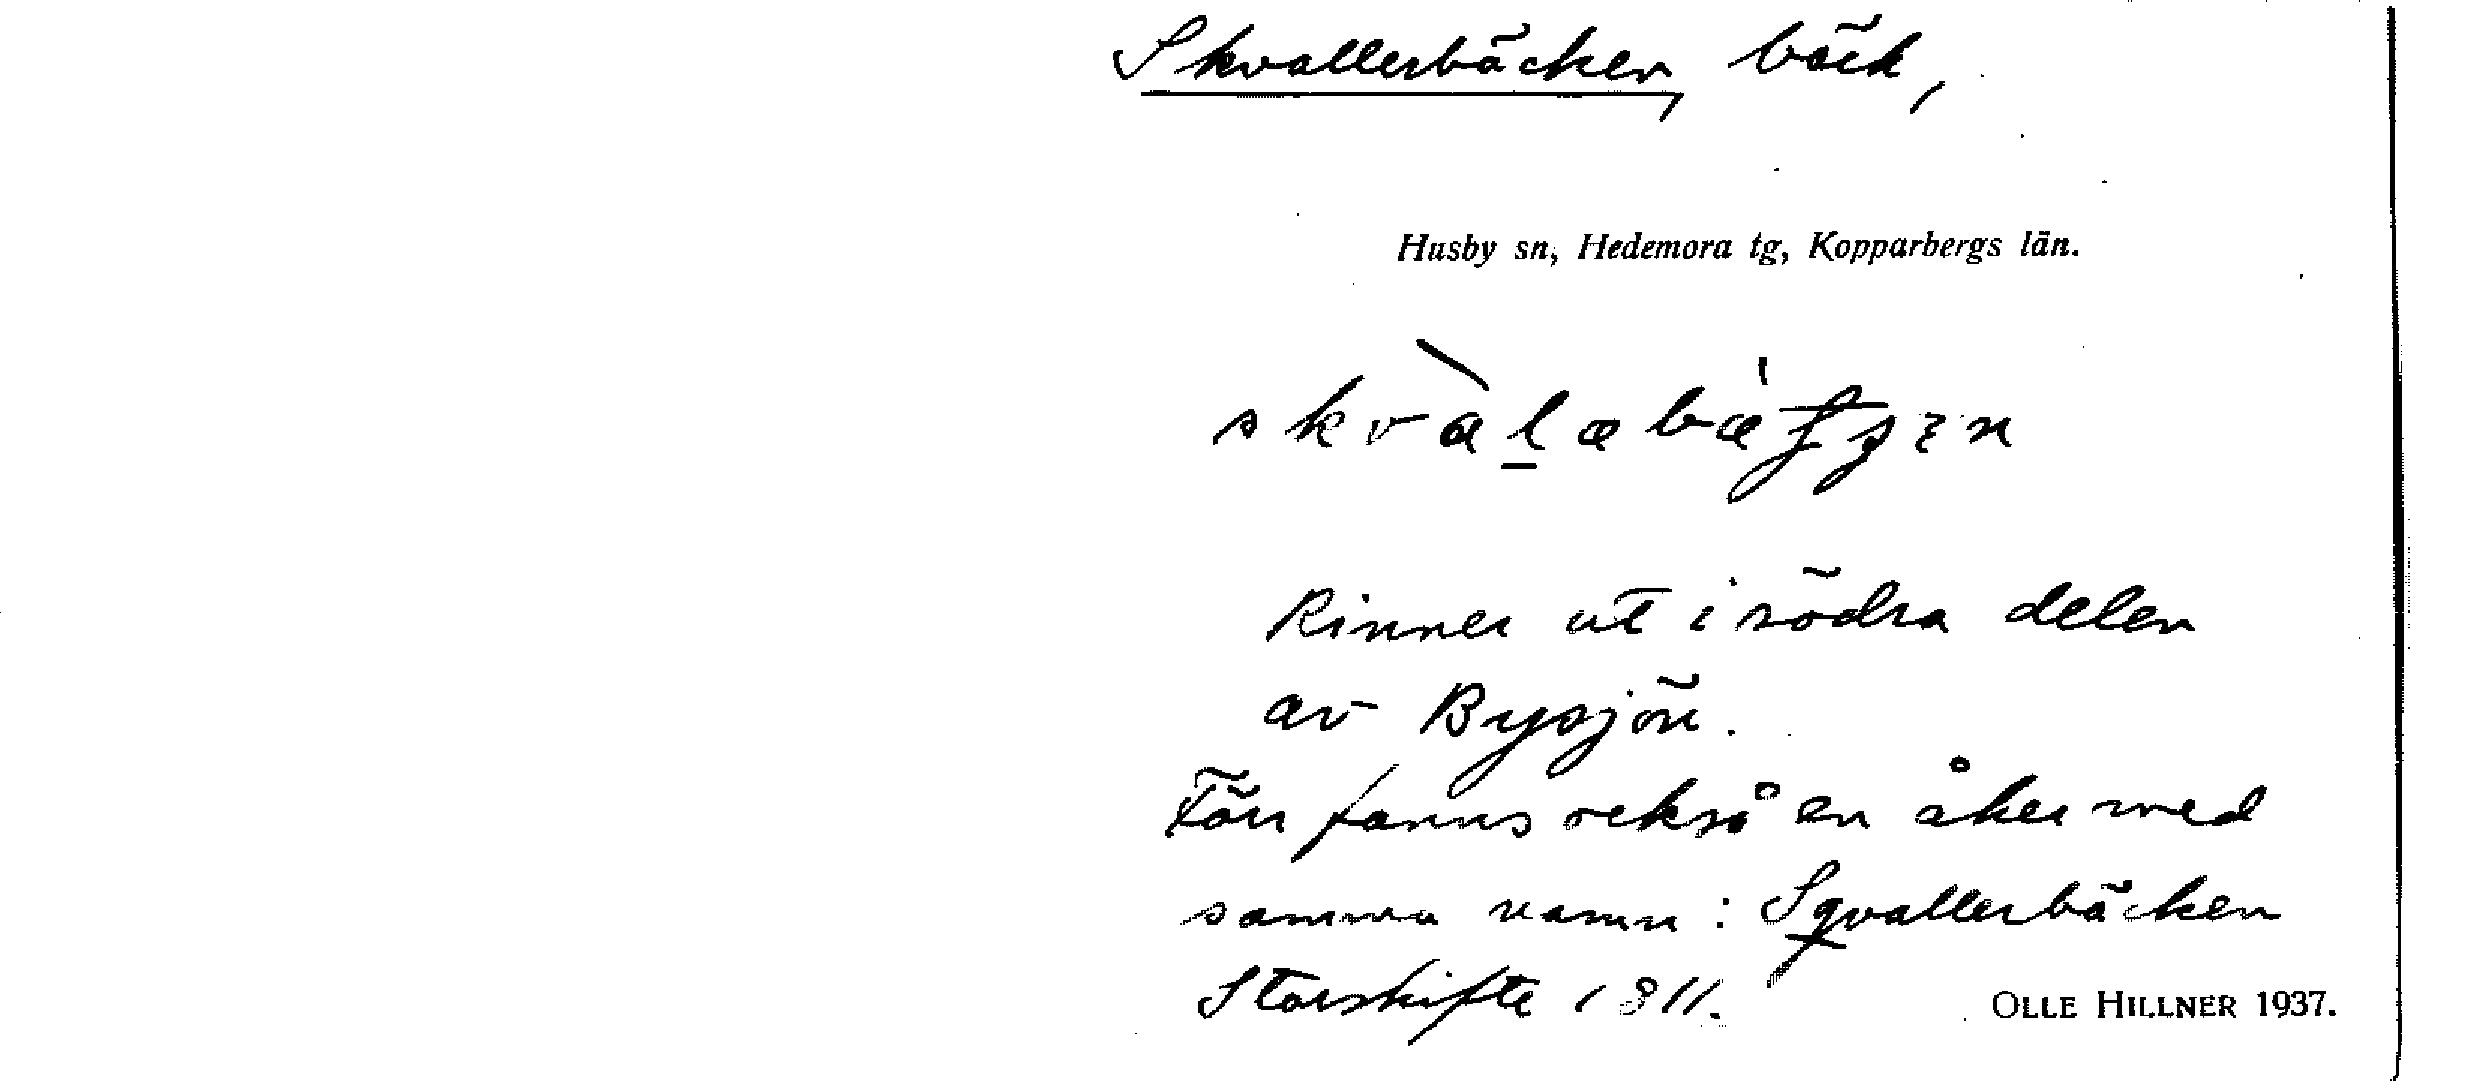 Skvallerbäcken, bäck,
Husby sn, Hedemora tg, Kopparbergs län.
Rinner ut i södra delen
av Bysjön.
Förr fanns också en åker med
samma namn: Sqvallerbäcken
Storskifte 1811.
OLLE HILLNER 1937.